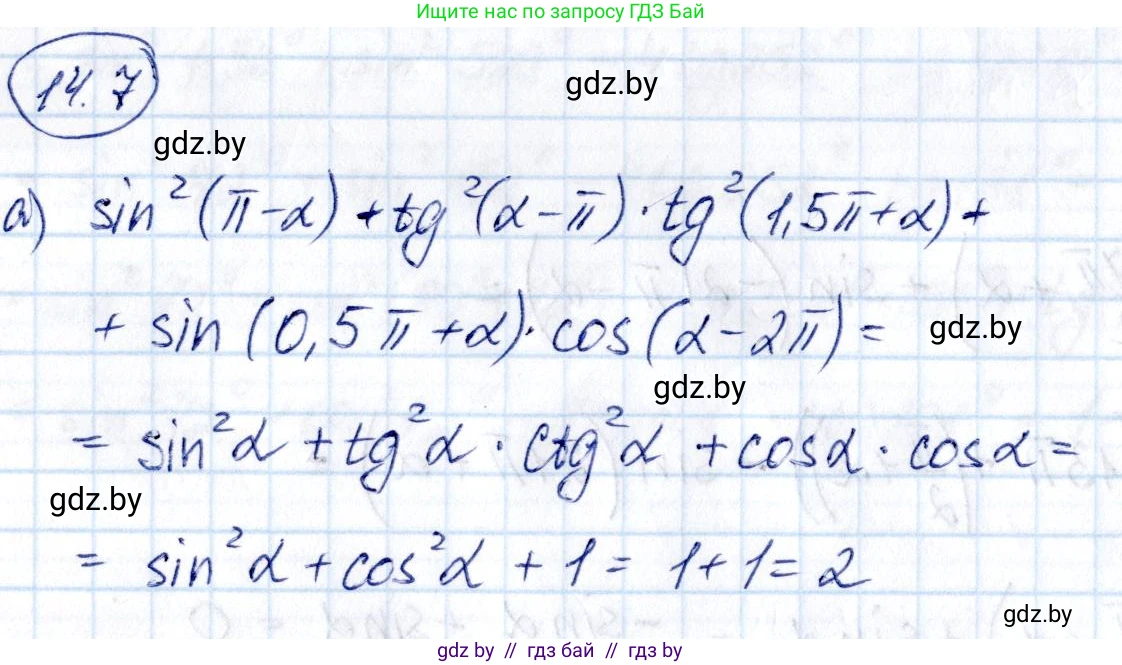 Ищите нас по запросу ГДЗ Бай
14.7
gdz.by
gdz.by
а) sin²(π-α) + tg²(α-π)·tg²(1,5π+α)+
+ sin(0,5π+α)·cos(α-2π)=
gdz.by
gdz.by
= sin²α + tg²α · ctg²α + cosα · cosα =
gdz.by
= sin²α + cos²α + 1 = 1+1=2
gdz.by
gdz by // гдз бай // гдз by